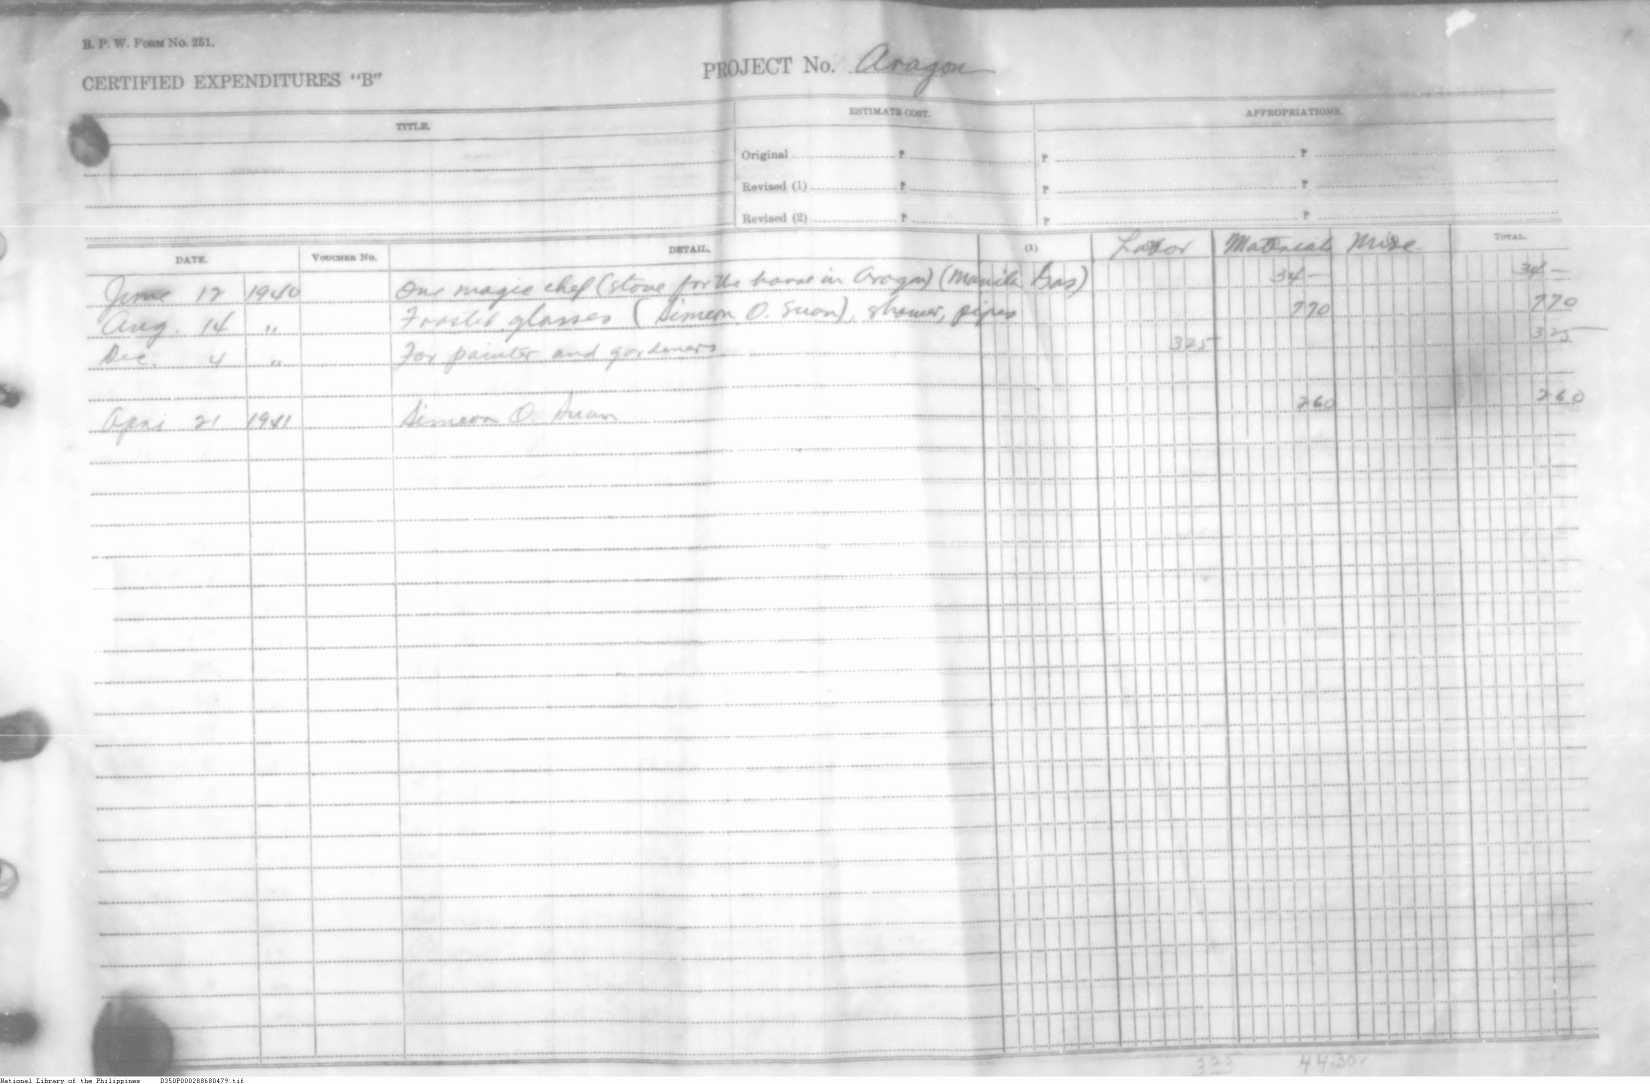 B. P. W. FORM NO. 251.
CERTIFIED EXPENDITURES "B"
PROJECT No. Aragon
TITLE.
ESTIMATE COST.
APPROPRIATIONS.
Original ₱ ₱ ₱
Revised (1) ₱ ₱ ₱
Revised (2) ₱ ₱ ₱
DATE. VOUCHER No. DETAIL. (1) Labor Material Misc TOTAL.
June 12 1940 One magic chef (stove for the house in Aragon) (Manila Gas) 34— 34—
Aug. 14 " Frosted glasses (Simeon O. Suan), shower, pipes 770 770
Dec. 4 " For painter and gardeners 325 325
April 21 1941 Simeon O. Suan 260 260
325
National Library of the Philippines D350P000288680479.tif